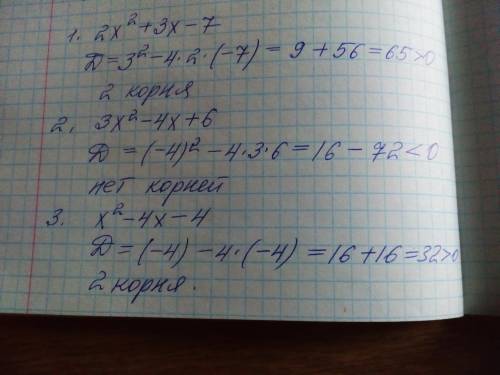 1. 2x²+3x-7
Д=3²-4·2·(-7)=9+56=65>0
2 корня
2. 3x²-4x+6
Д=(-4)²-4·3·6=16-72<0
нет корней
3. x²-4x-4
Д=(-4)-4·(-4)=16+16=32>0
2 корня.